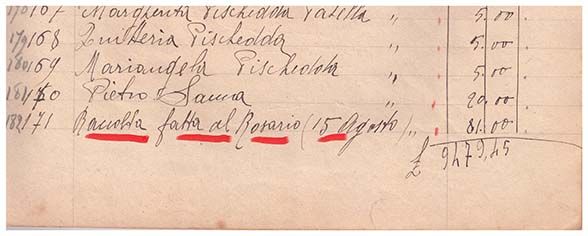 167 Margherita Pischedda Patella " 5.00
168 Zuitteria Pischedda " 5.00
169 Mariangela Pischedda " 5.00
170 Pietro Sanna " 20.00
171 Raccolta fatta al Rosario (15 Agosto) " 81.00
£ 9479,45